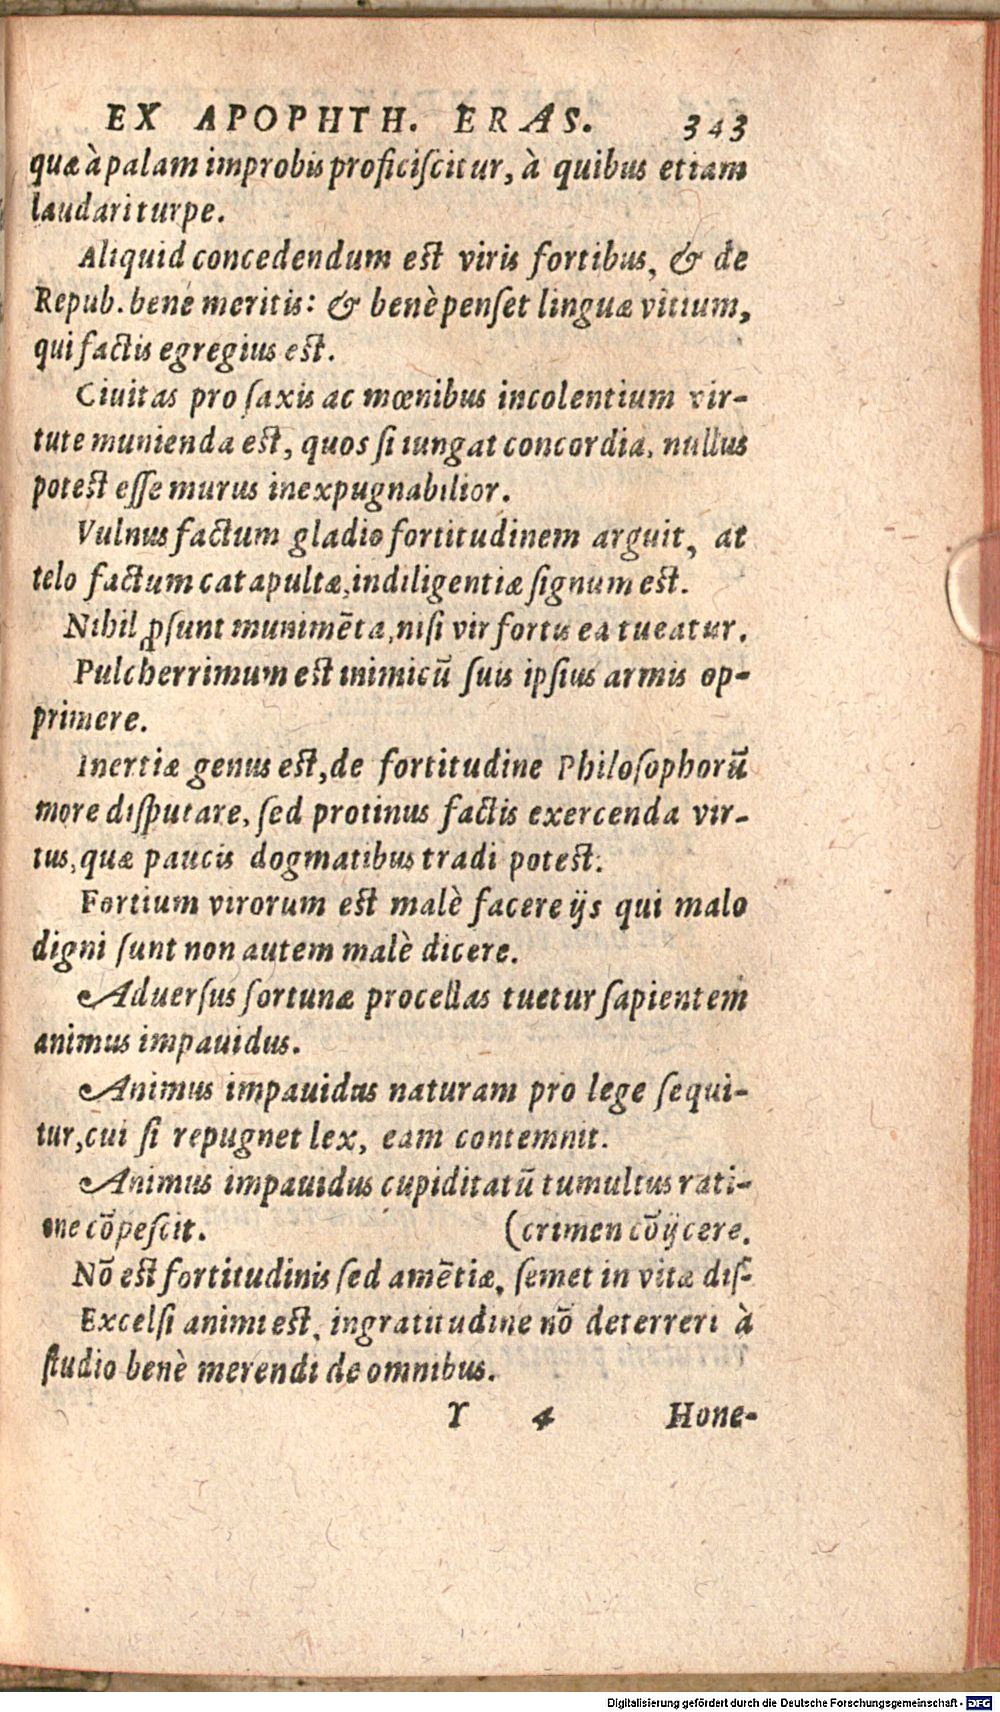 EX APOPHTH. ERAS. 343
quæ à palam improbis proficiſcitur, à quibus etiam
laudari turpe.
Aliquid concedendum eſt viris fortibus, & de
Repub. benè meritis: & benè penſet linguæ vitium,
qui factis egregius eſt.
Ciuitas pro ſaxis ac mœnibus incolentium vir-
tute munienda eſt, quos ſi iungat concordia, nullus
poteſt eſſe murus inexpugnabilior.
Vulnus factum gladio fortitudinem arguit, at
telo factum catapultæ, indiligentiæ ſignum eſt.
Nihil ꝓſunt munimẽta, niſi vir fortis ea tueatur.
Pulcherrimum eſt inimicũ ſuis ipſius armis op-
primere.
Inertiæ genus eſt, de fortitudine Philoſophorũ
more diſputare, ſed protinus factis exercenda vir-
tus, quæ paucis dogmatibus tradi poteſt.
Fortium virorum eſt malè facere ijs qui malo
digni ſunt non autem malè dicere.
Aduerſus fortunæ procellas tuetur ſapientem
animus impauidus.
Animus impauidus naturam pro lege ſequi-
tur, cui ſi repugnet lex, eam contemnit.
Animus impauidus cupiditatũ tumultus rati-
one cõpeſcit. (crimen cõijcere.
Nõ eſt fortitudinis ſed amẽtiæ, ſemet in vitæ diſ-
Excelſi animi eſt, ingratitudine nõ deterreri à
ſtudio benè merendi de omnibus.
Y 4 Hone-
Digitalisierung gefördert durch die Deutsche Forschungsgemeinschaft - DFG